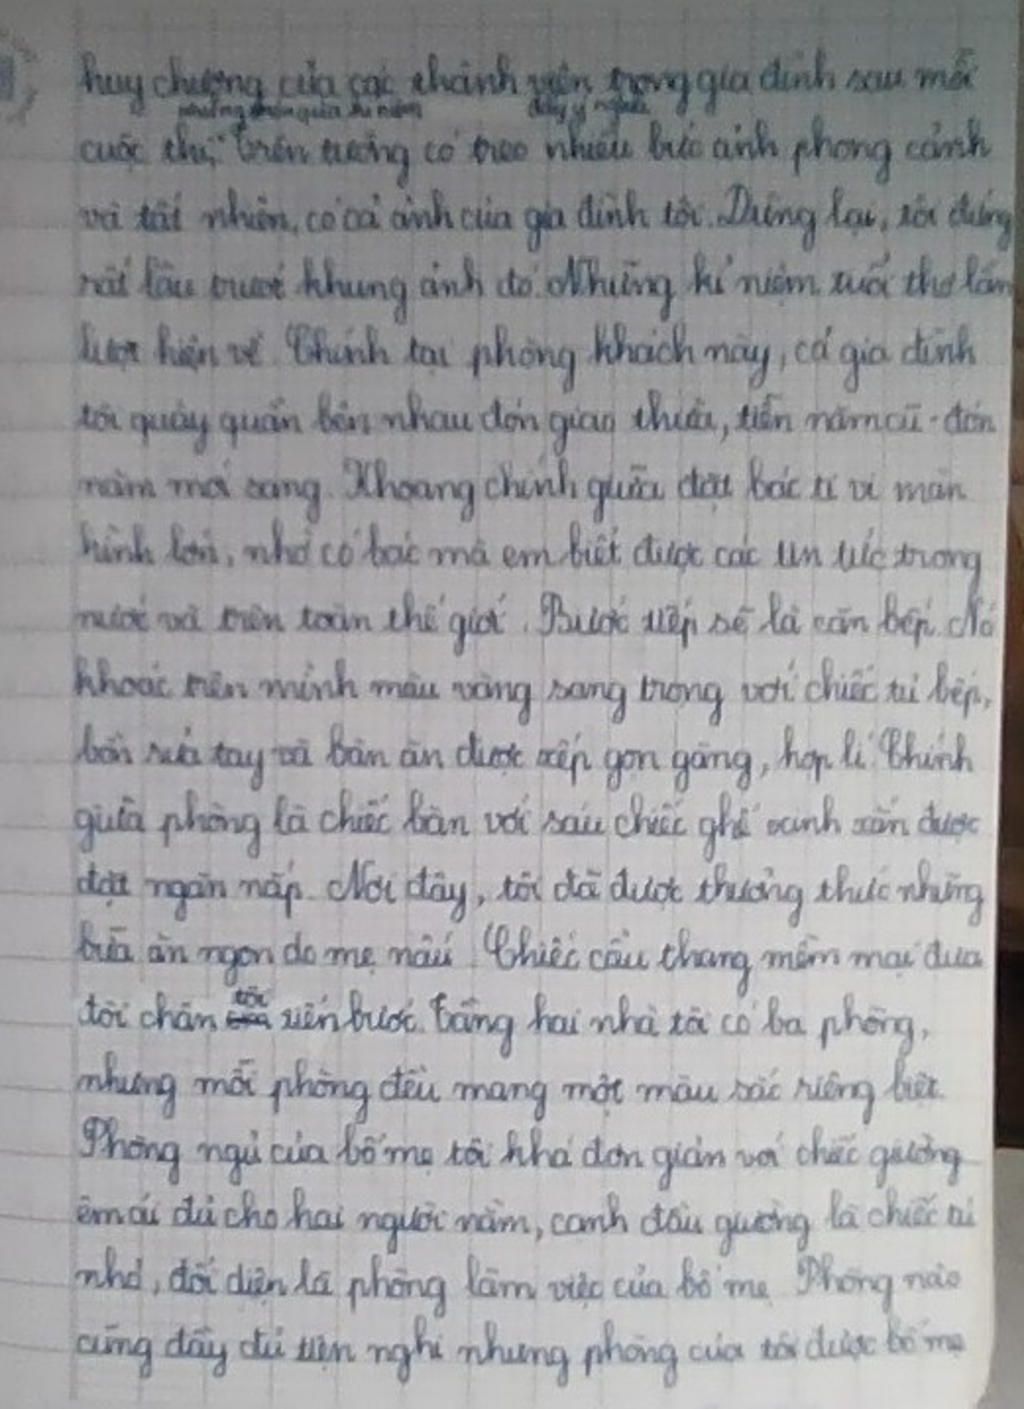 huy chương của các thành viên trong gia đình sau mỗi
những món quà kỉ niệm đầy ý nghĩa
cuộc thi, trên tường có treo nhiều bức ảnh phong cảnh
và tất nhiên, có cả ảnh của gia đình tôi. Dừng lại, tôi đứng
rất lâu trước khung ảnh đó. Những kỉ niệm tuổi thơ lần
lượt hiện về. Chính tại phòng khách này, cả gia đình
tôi quây quần bên nhau đón giao thừa, tiễn năm cũ - đón
năm mới sang. Khoang chính giữa đặt bác ti vi màn
hình lớn, nhờ có bác mà em biết được các tin tức trong
nước và trên toàn thế giới. Bước tiếp sẽ là căn bếp. Nó
khoác trên mình màu vàng sang trọng với chiếc tủ bếp,
bồn rửa tay và bàn ăn được xếp gọn gàng, hợp lí. Chính
giữa phòng là chiếc bàn với sáu chiếc ghế xinh xắn được
đặt ngăn nắp. Nơi đây, tôi đã được thưởng thức những
bữa ăn ngon do mẹ nấu. Chiếc cầu thang mềm mại đưa
đôi chân tôi tiến bước. Tầng hai nhà tôi có ba phòng,
nhưng mỗi phòng đều mang một màu sắc riêng biệt.
Phòng ngủ của bố mẹ tôi khá đơn giản với chiếc giường
êm ái đủ cho hai người nằm, cạnh đầu giường là chiếc tủ
nhỏ, đối diện là phòng làm việc của bố mẹ. Phòng nào
cũng đầy đủ tiện nghi nhưng phòng của tôi được bố mẹ